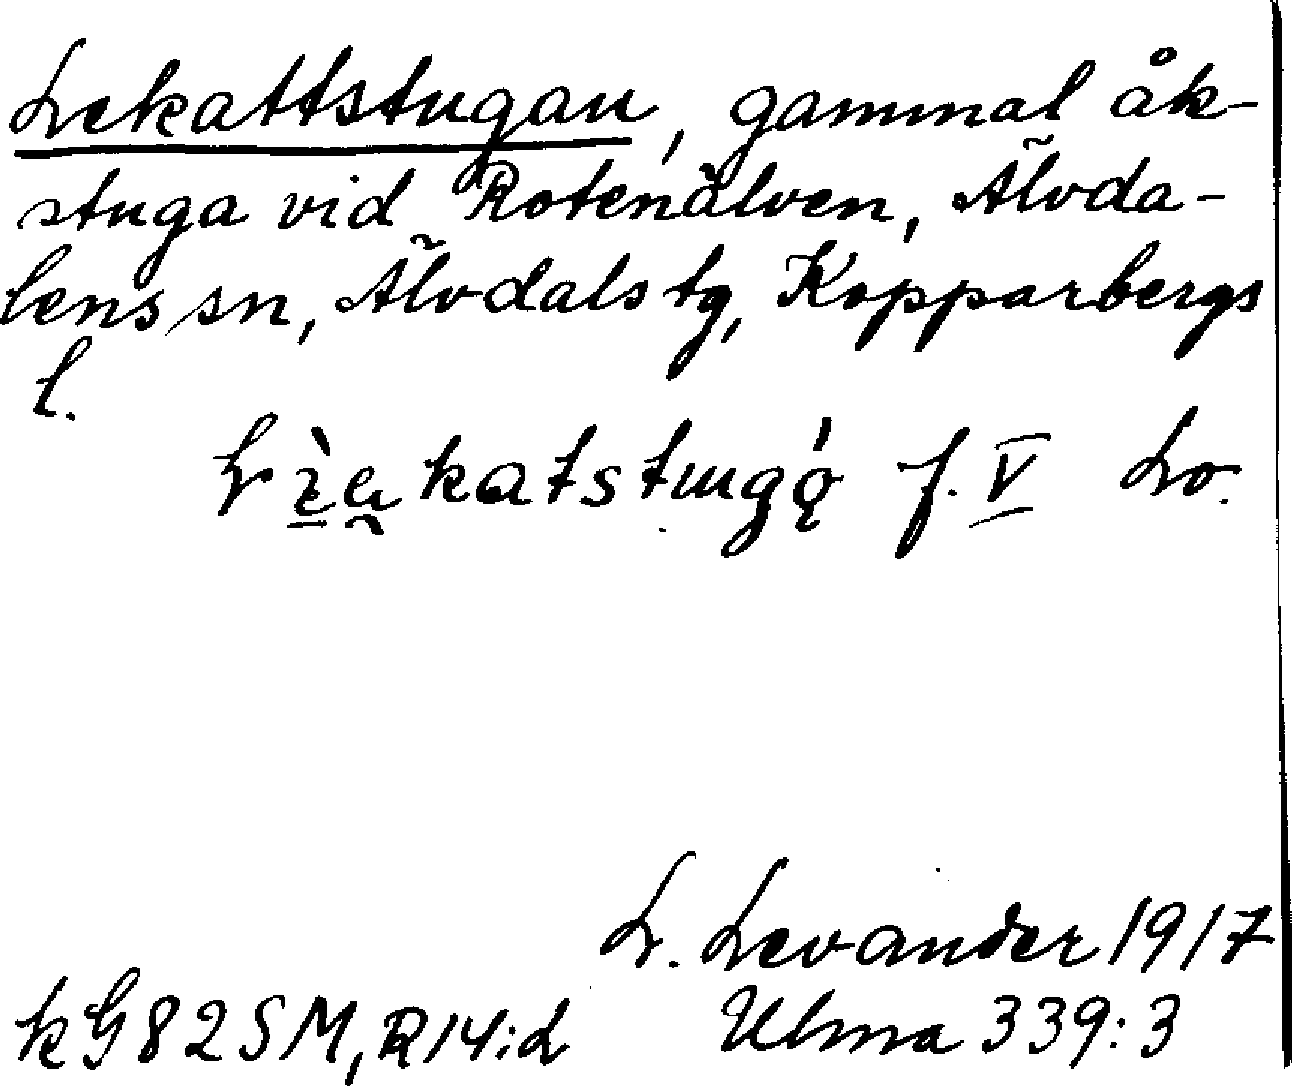 Lekattstugan, gammal åk-
stuga vid Rotenälven, Älvda-
lens sn, Älvdals tg, Kopparbergs
l.
f. V Lo.
L. Levander 1917
kG82SM, R14:d Ulma 339:3